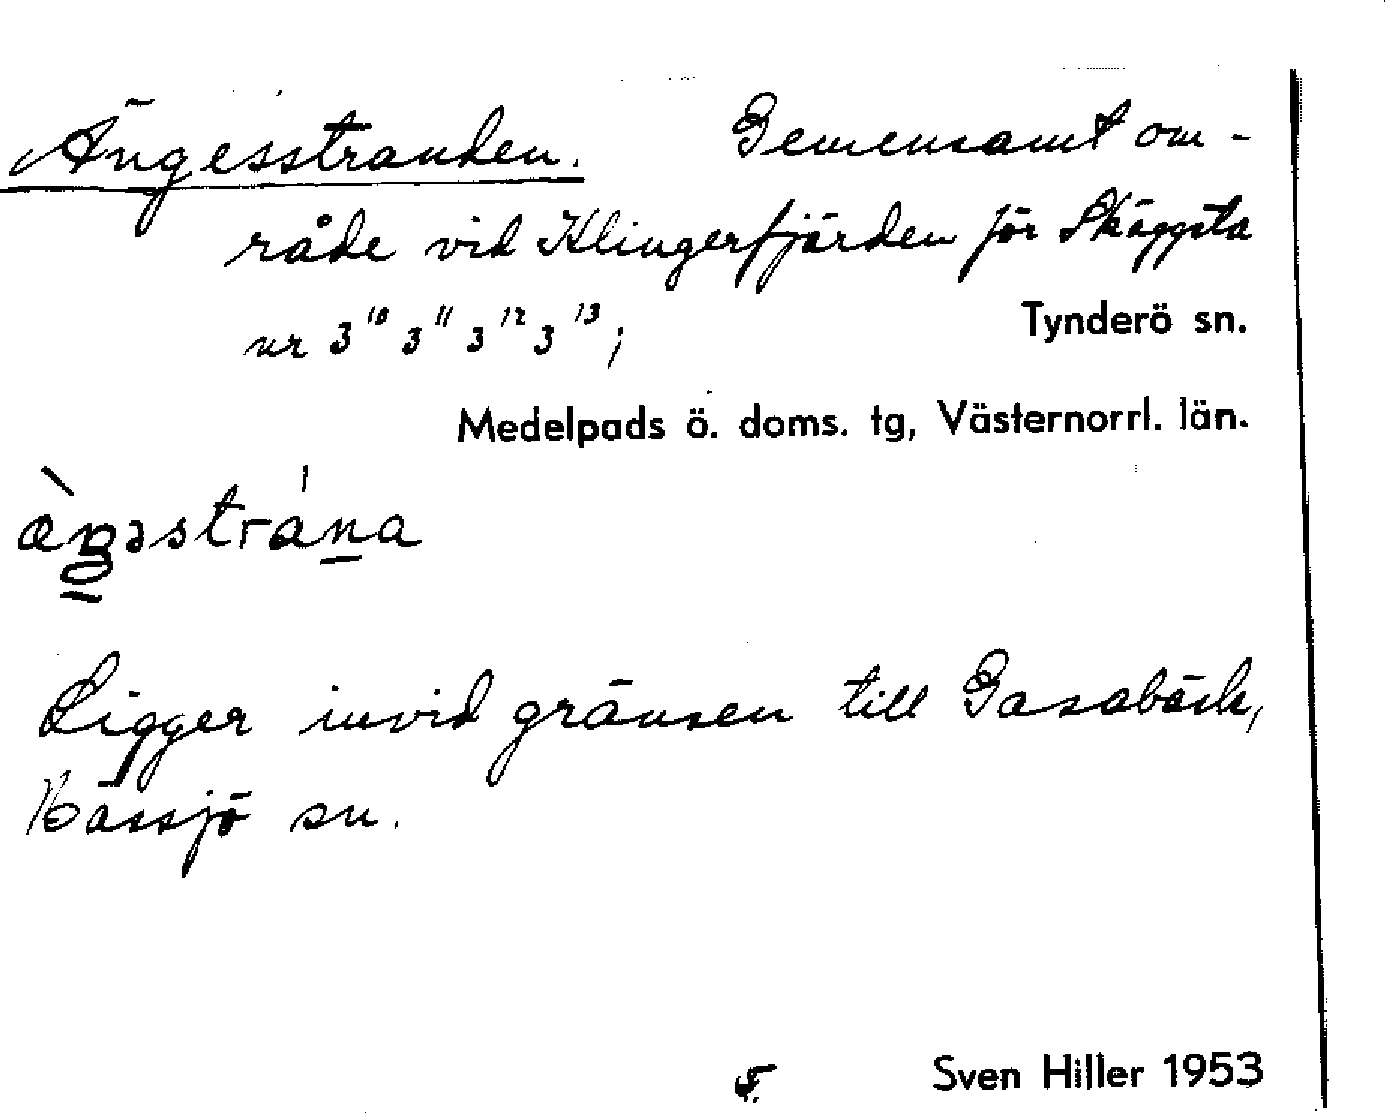 Ängesstranden. Gemensamt om-
råde vid Klingerfjärden för Skäggsta
nr 3¹⁰ 3¹¹ 3¹² 3¹³; Tynderö sn.
Medelpads ö. doms. tg, Västernorrl. län.
Ligger invid gränsen till Gasabäck,
Hässjö sn.
Sven Hiller 1953